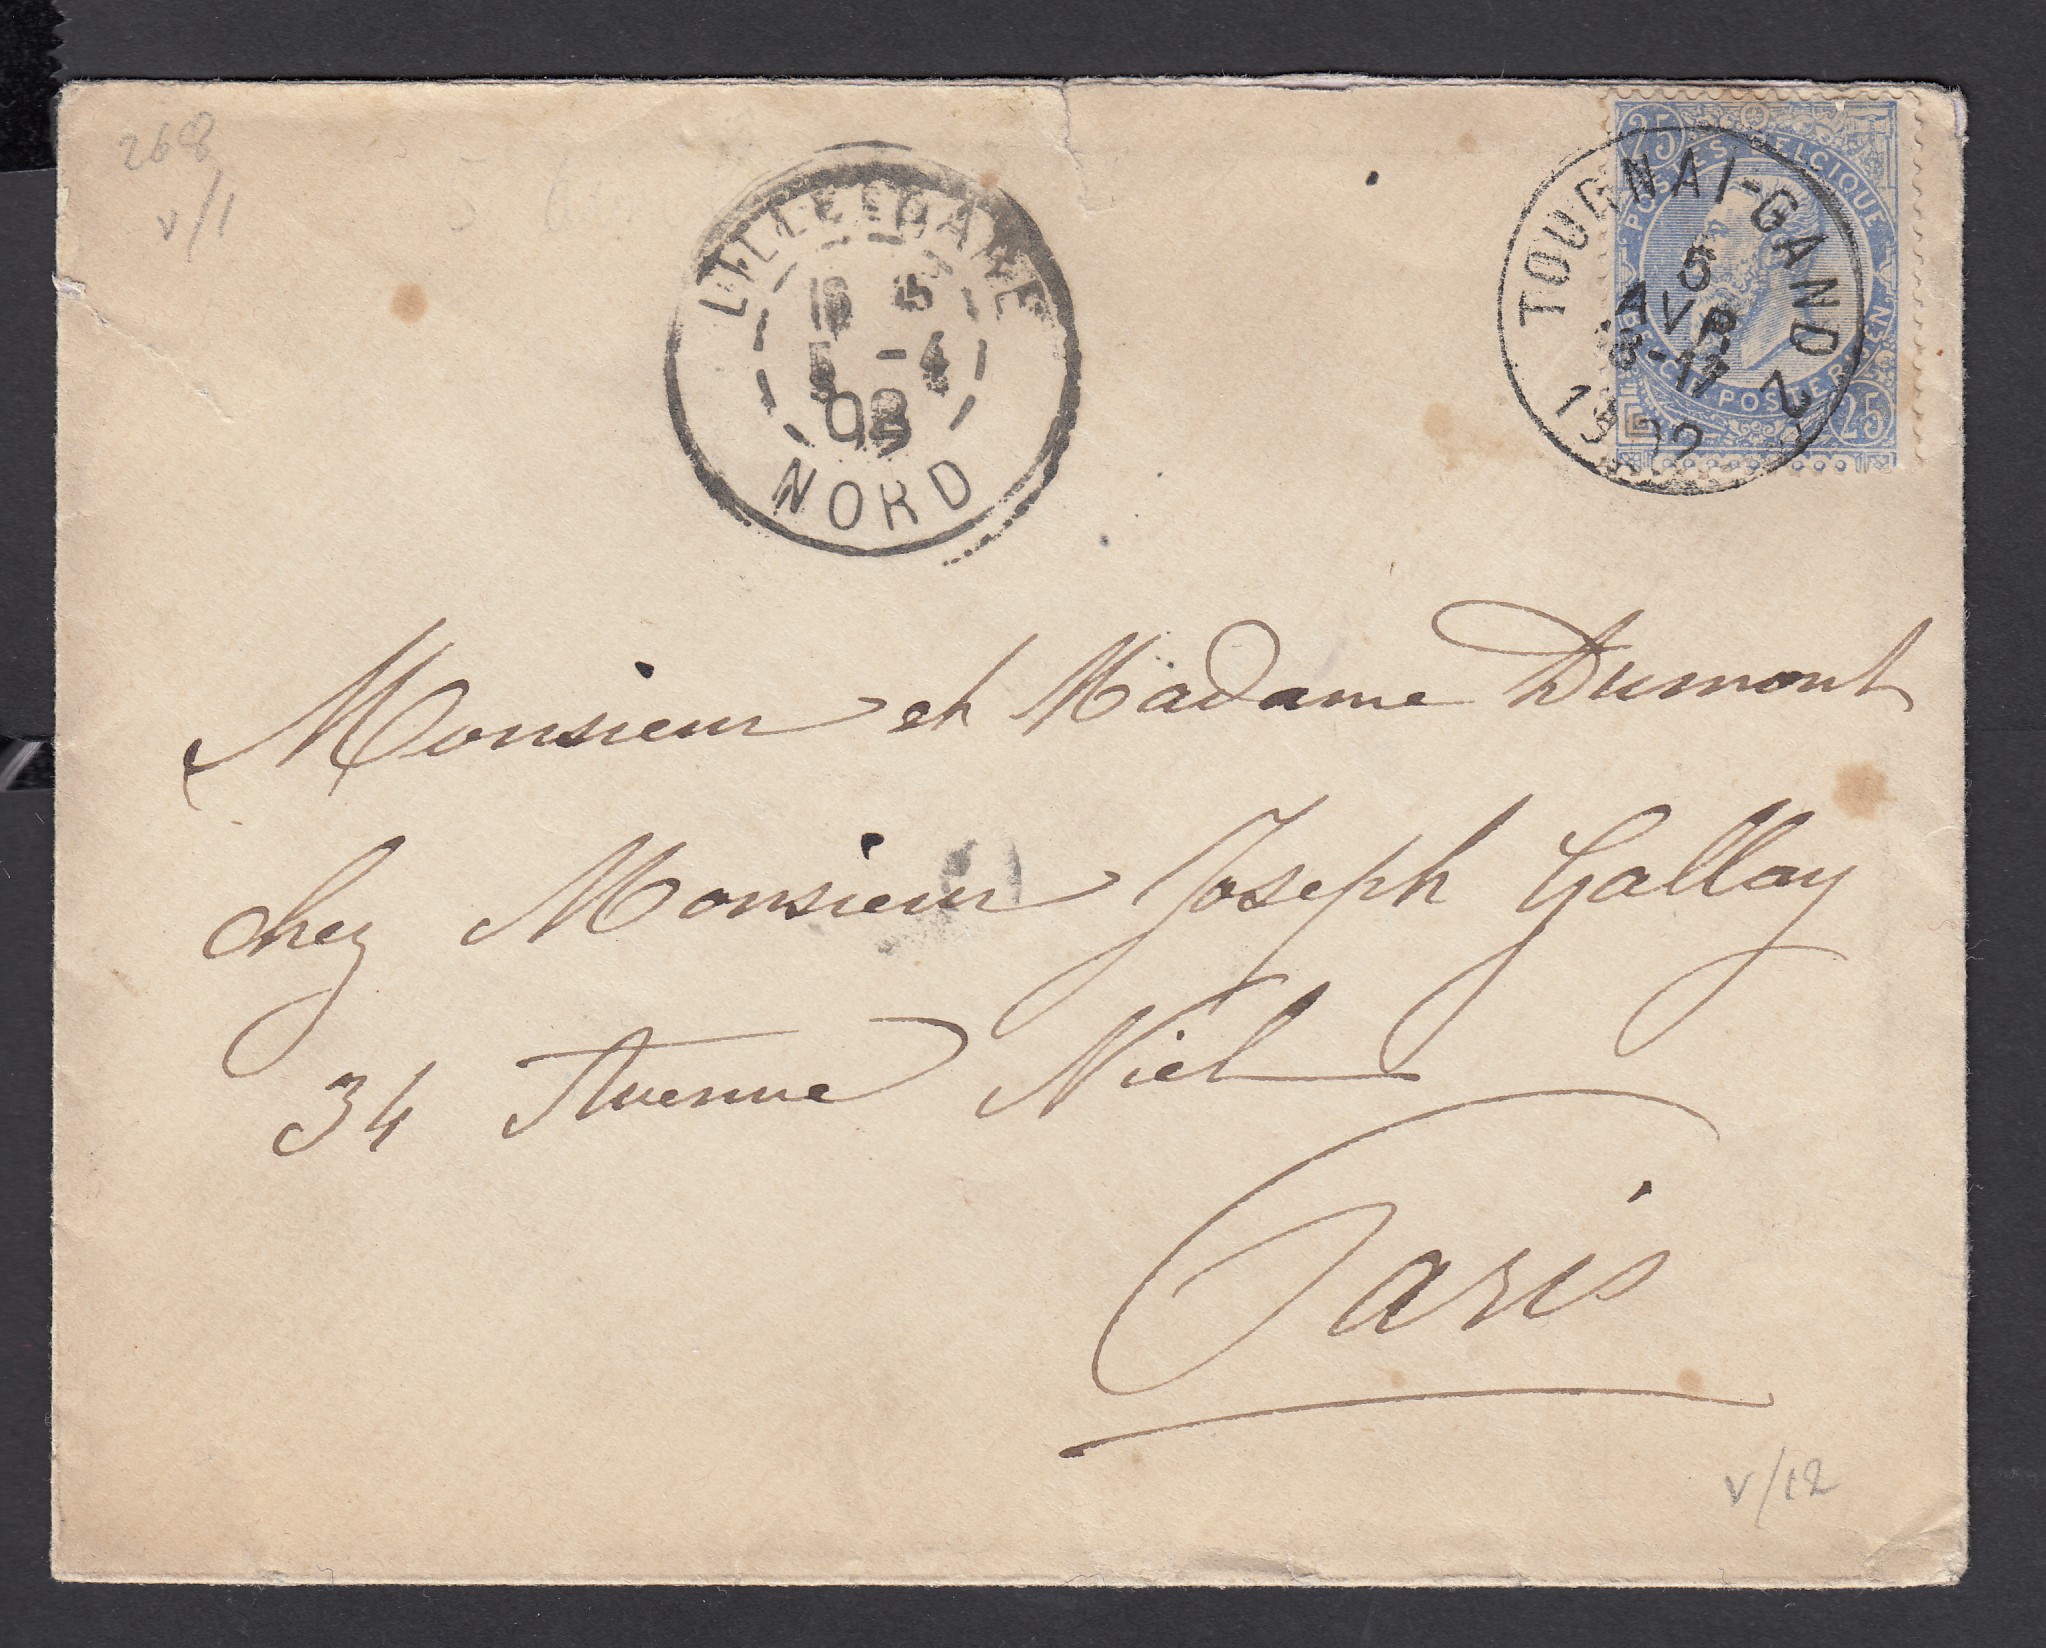 268
v/1
LILLE GARE
16 15
5 -4
02
NORD
25
POSTES BELGIQUE
TOURNAI-GAND 2
5
AVR
8-17
1902
25
Monsieur et Madame Dumont
chez Monsieur Joseph Gallay
34 Avenue Niel
Paris
v/12